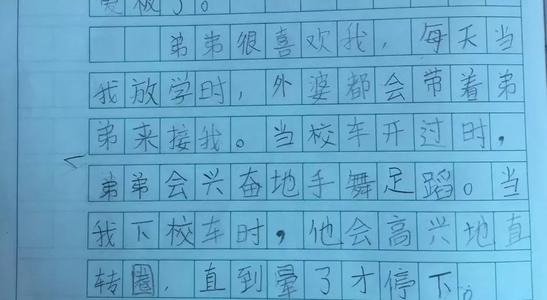 爱极了。
弟弟很喜欢我，每天当
我放学时，外婆都会带着弟
弟来接我。当校车开过时，
弟弟会兴奋地手舞足蹈。当
我下校车时，他会高兴地直
转圈，直到晕了才停下。